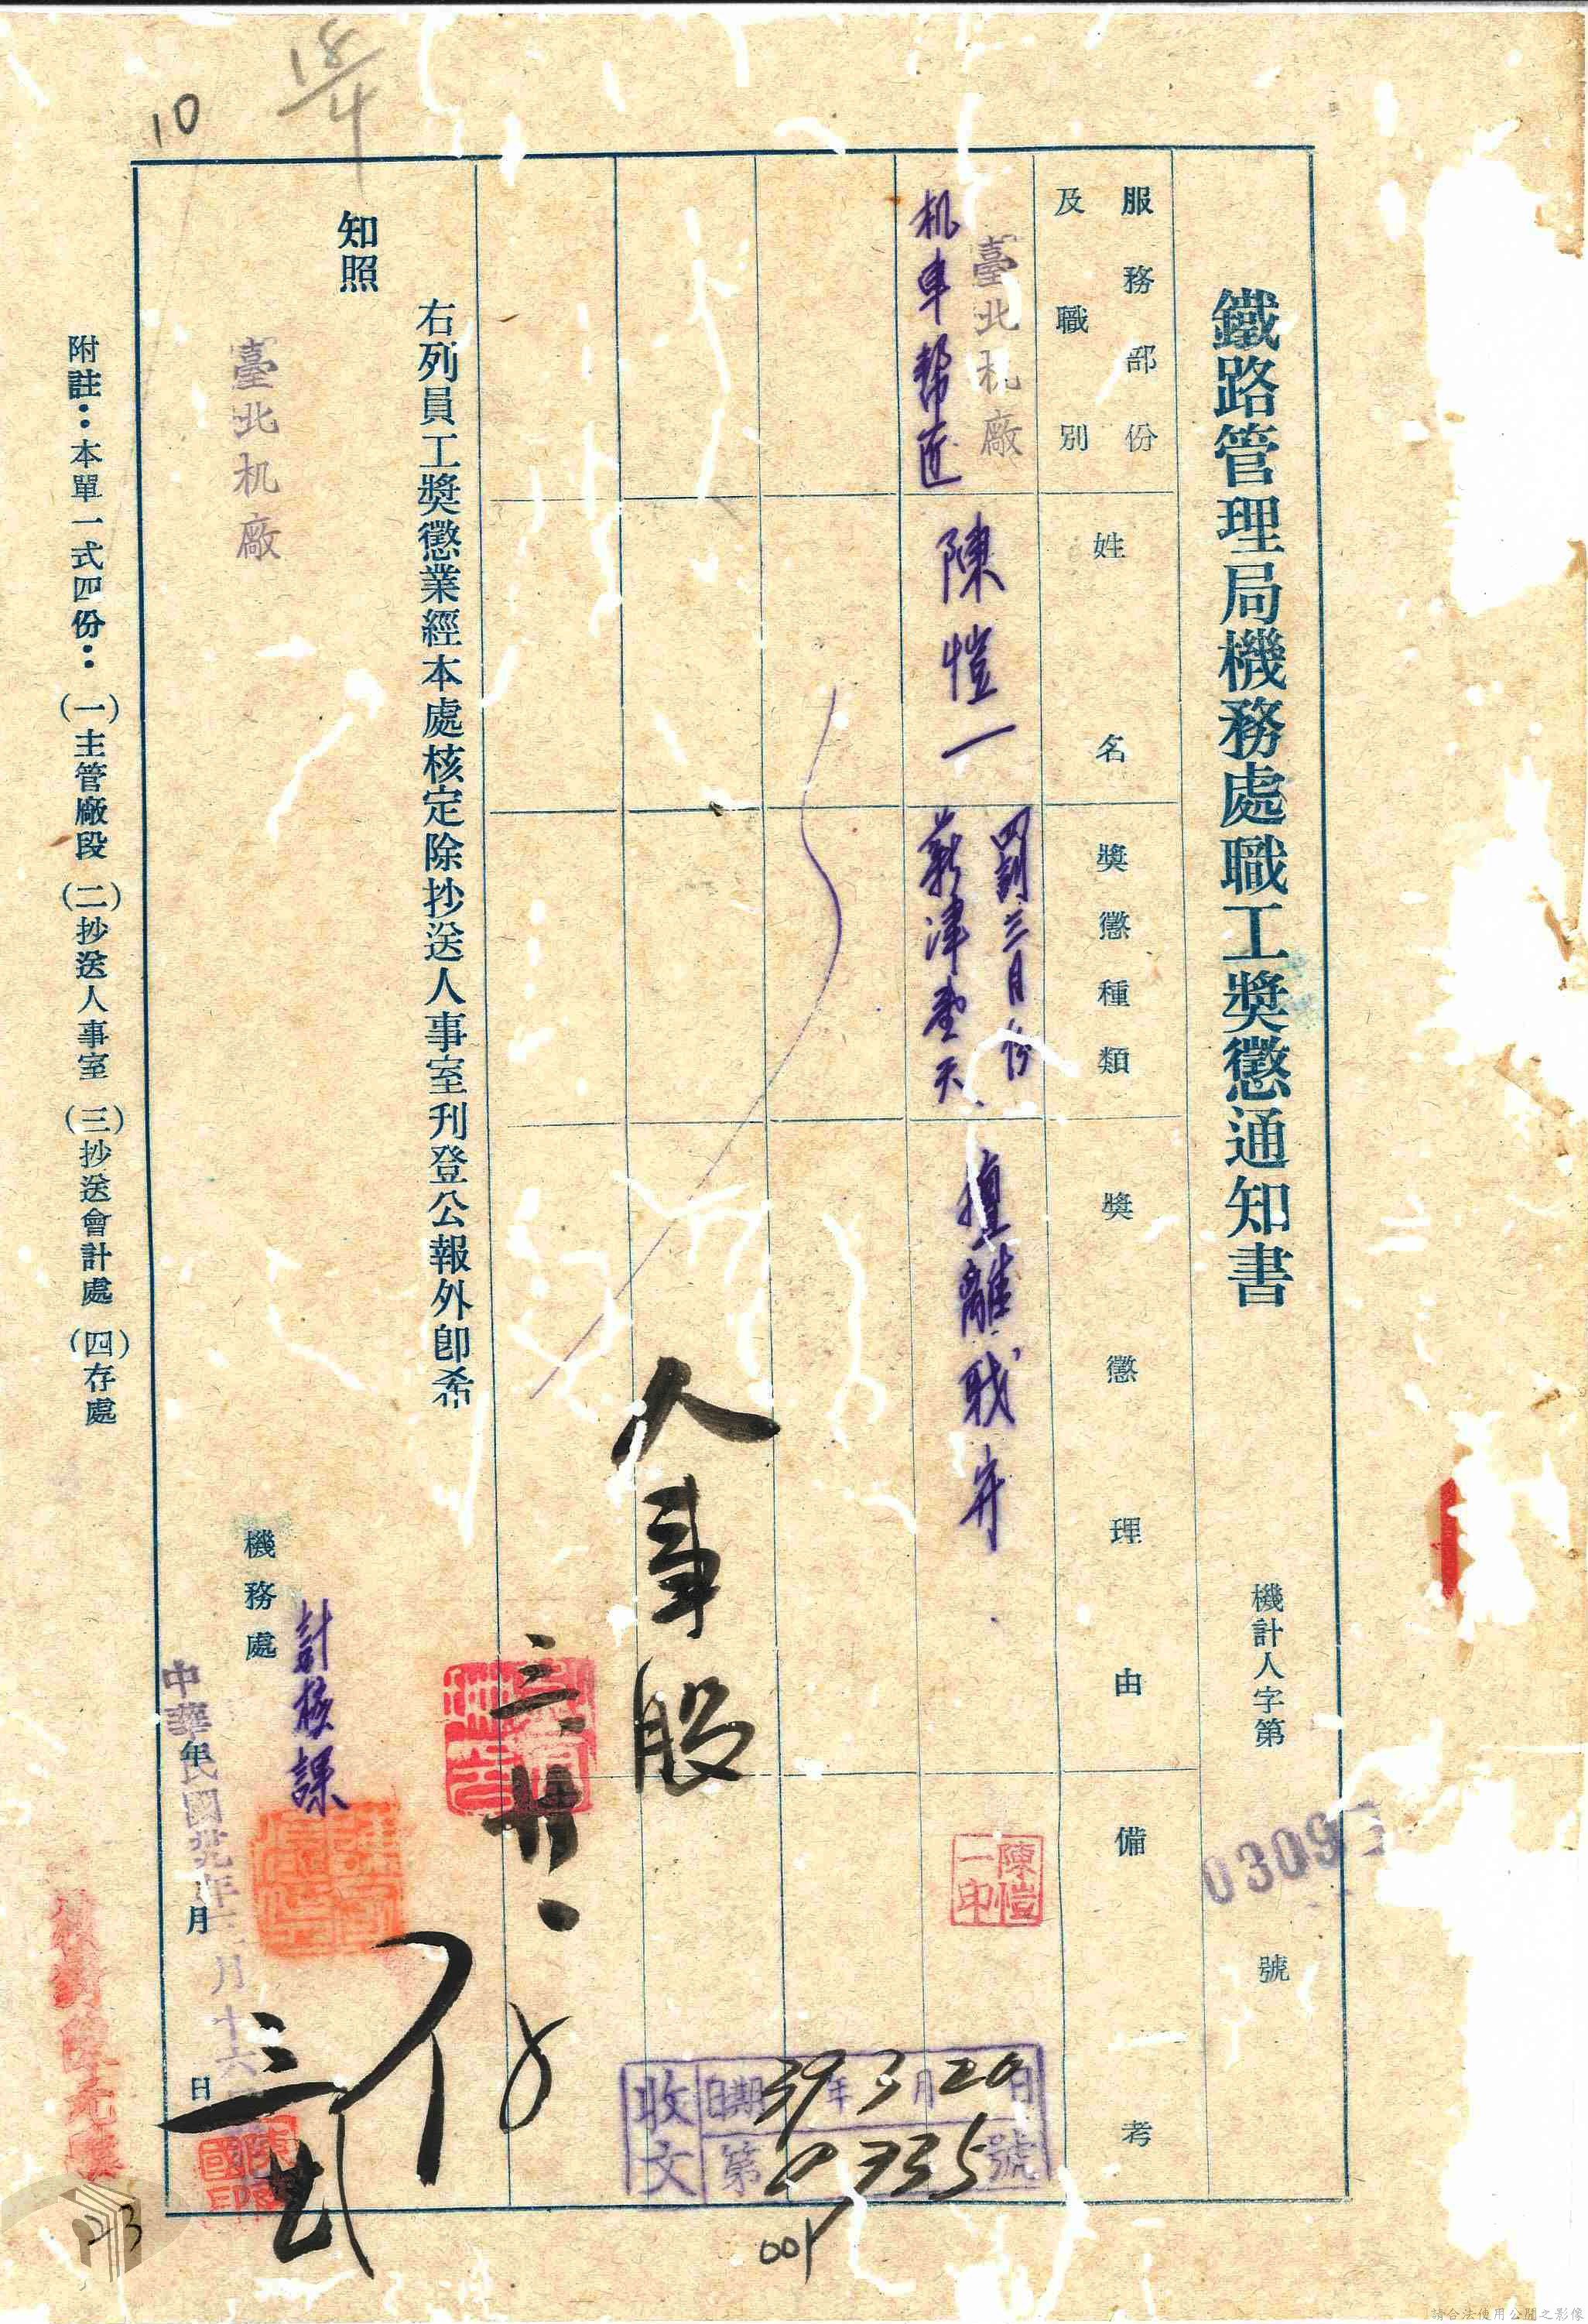 鐵路管理局機務處職工獎懲通知書
機計人字第 0309 號
服務部份
及職別
姓名
獎懲種類
獎懲理由
備考
臺北机廠
机車帮匠
陳愷一
罰三月份
薪津壹天
擅離職守
陳愷一印
人事股
右列員工獎懲業經本處核定除抄送人事室刊登公報外卽希
知照
臺北机廠
機務處
計核課
中華民國卅九年三月十六日
年月日
附註：本單一式四份：(一)主管廠段(二)抄送人事室(三)抄送會計處(四)存處
收文
日期39年3月20日
第0735號
001
10
18/4
請合法使用公開之影像